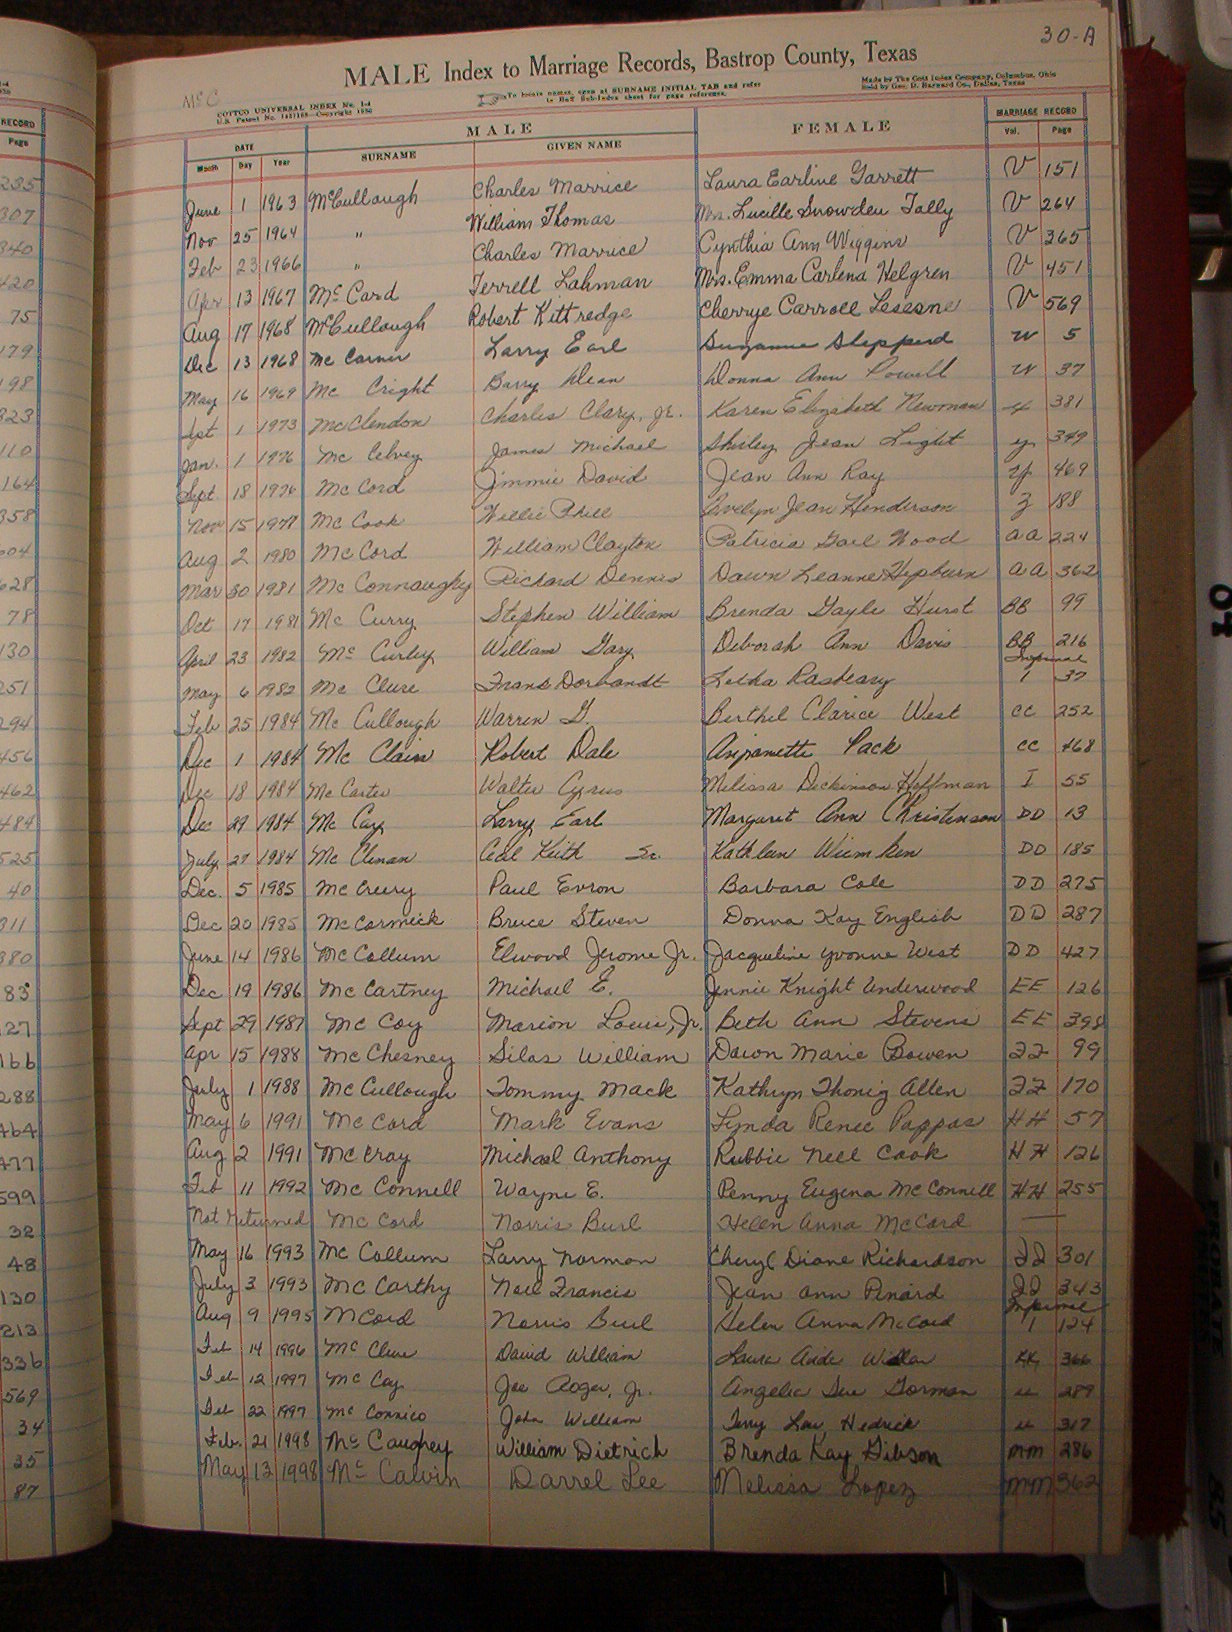 30-A
MALE Index to Marriage Records, Bastrop County, Texas
McC
COTTCO UNIVERSAL INDEX No. 1-d
U.S. Patent No. Copyright
To locate names, open at SURNAME INITIAL TAB and refer
to Buff Sub-Index sheet for page reference.
Made by The Cott Index Company, Columbus, Ohio
Sold by Geo. D. Barnard Co., Dallas, Texas
DATE MALE FEMALE MARRIAGE RECORD
Month Day Year SURNAME GIVEN NAME Vol. Page
June 1 1963 McCullough Charles Marrice Laura Earline Garrett V 151
Nov 25 1964 " William Thomas Mrs. Lucille Snowden Tally V 264
Feb 23 1966 " Charles Marrice Cynthia Ann Wiggins V 365
Apr 13 1967 McCord Terrell Lahman Mrs. Emma Carlena Helgren V 451
Aug 17 1968 McCullough Robert Kittredge Cherrye Carroll Lesesne V 569
Dec 13 1968 Mc Carver Larry Earl Suzanne Shepperd W 5
May 16 1969 Mc Cright Barry Dean Donna Ann Powell W 37
Spt 1 1973 McClendon Charles Clary, Jr. Karen Elizabeth Newman 381
Jan. 1 1976 Mc Celvey James Michael Shirley Jean Light y 349
Sept 18 1976 Mc Cord Jimmie David Jean Ann Ray y 469
Nov 15 1977 Mc Cook Willie Phill Evelyn Jean Henderson Z 188
Aug 2 1980 McCord William Clayton Patricia Gail Wood AA 224
Mar 30 1981 Mc Connaughy Richard Dennis Dawn Leanne Hepburn AA 362
Oct 17 1981 Mc Curry Stephen William Brenda Gayle Hurst BB 99
April 23 1982 Mc Curley William Gary Deborah Ann Davis BB 216
May 6 1982 Mc Clure Frank Dorbandt Letha Rasberry Informal 1 37
Feb 25 1984 Mc Cullough Warren G. Berthel Clarice West CC 252
Dec 1 1984 Mc Clain Robert Dale Anjanette Pack CC 468
Dec 18 1984 Mc Carter Walter Cyrus Melissa Dickinson Hoffman I 55
Dec 29 1984 Mc Cay Larry Earl Margaret Ann Christenson DD 13
July 27 1984 Mc Clenan Cecil Keith Sr. Kathleen Wiemken DD 185
Dec. 5 1985 McCreery Paul Evron Barbara Cole DD 275
Dec 20 1985 McCormick Bruce Steven Donna Kay English DD 287
June 14 1986 McCollum Elwood Jerome Jr. Jacqueline Yvonne West DD 427
Dec 19 1986 McCartney Michael E. Jennie Knight Underwood EE 126
Sept 29 1987 McCoy Marion Louis, Jr. Beth Ann Stevens EE 398
Apr 15 1988 McChesney Silas William Dawn Marie Bowen FF 99
July 1 1988 McCullough Tommy Mack Kathryn Thonig Allen FF 170
May 6 1991 McCord Mark Evans Lynda Renee Pappas HH 57
Aug 2 1991 McCray Michael Anthony Rubbie Nell Cook HH 126
Feb 11 1992 McConnell Wayne E. Penny Eugena McConnell HH 255
Not returned McCord Norris Burl Helen Anna McCord —
May 16 1993 McCollum Larry Norman Cheryl Diane Richardson II 301
July 3 1993 McCarthy Noel Francis Jean Ann Pinard II 343
Aug 9 1995 McCord Norris Burl Helen Anna McCord Informal 1 124
Feb 14 1996 Mc Clure David William Laura KK 366
Feb 12 1997 Mc Coy Joe Roger, Jr. Angelia Sue Gorman LL 289
Feb 22 1997 Mc Connico John William Terry Lou Hedrick LL 317
Feb. 21 1998 McCaughey William Dietrich Brenda Kay Gibson MM 286
May 13 1998 McCalvin Darrel Lee Melissa Lopez MM 362
RECORD
Page
235
307
340
420
75
179
198
323
110
164
358
504
628
78
130
251
294
456
462
484
525
40
311
380
83
127
166
288
464
477
599
32
48
130
213
336
569
34
35
87